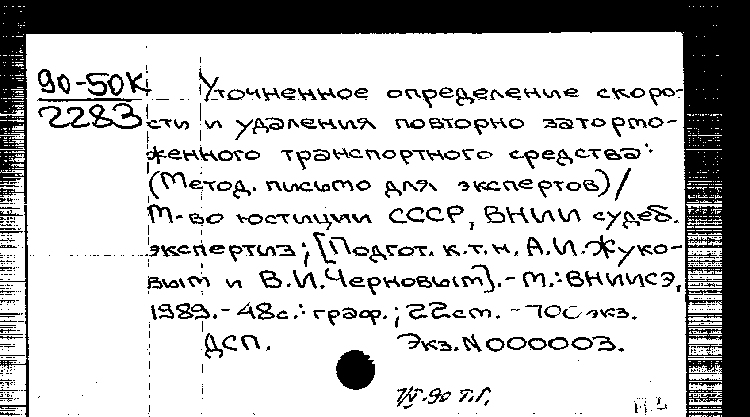 90-50К
2283
Уточненное определение скоро-
сти и удаления повторно затормо-
женного транспортного средства:
(Метод. письмо для экспертов)/
М-во юстиции СССР, ВНИИ судеб.
экспертиз; [Подгот. к.т.н. А.И.Жуко-
вым и В.И.Черновым].-М.:ВНИИСЭ,
1989.-48с.:граф.; 22см. -700экз.
ДСП. Экз.N000003.